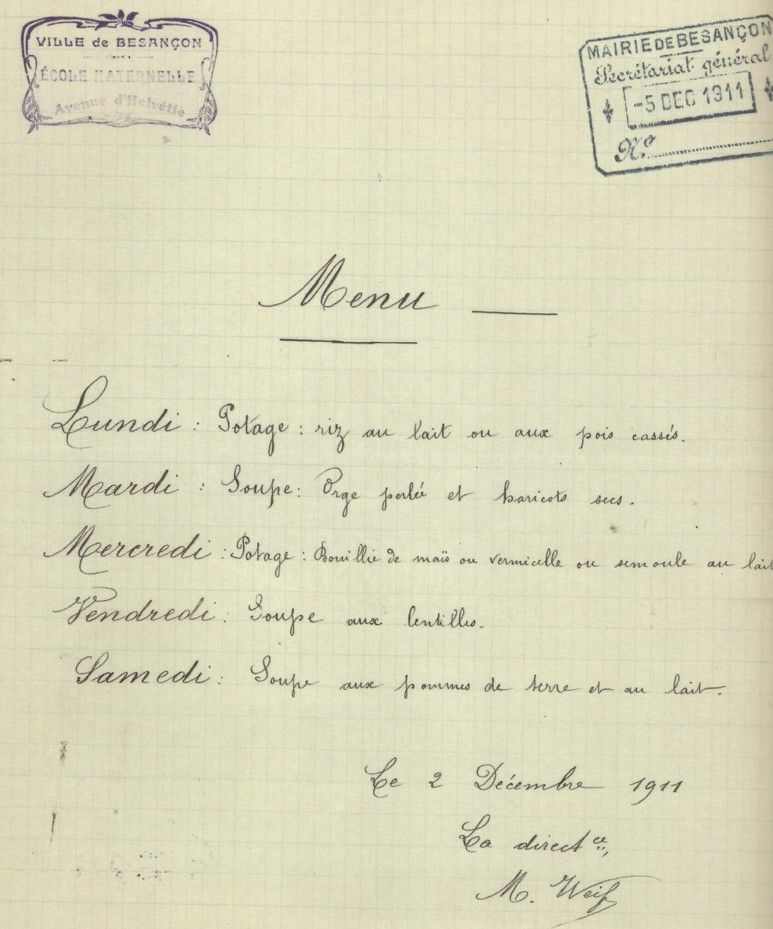 VILLE de BESANÇON
ÉCOLE MATERNELLE
Avenue d'Helvétie
MAIRIE DE BESANÇON
Secrétariat général
-5 DEC 1911
N.º
Menu
Lundi : Potage : riz au lait ou aux pois cassés.
Mardi : Soupe : Orge perlée et haricots secs.
Mercredi : Potage : Bouillie de maïs ou vermicelle ou semoule au lait
Vendredi : Soupe aux lentilles.
Samedi : Soupe aux pommes de terre et au lait.
Le 2 Décembre 1911
La direct ce,
M.